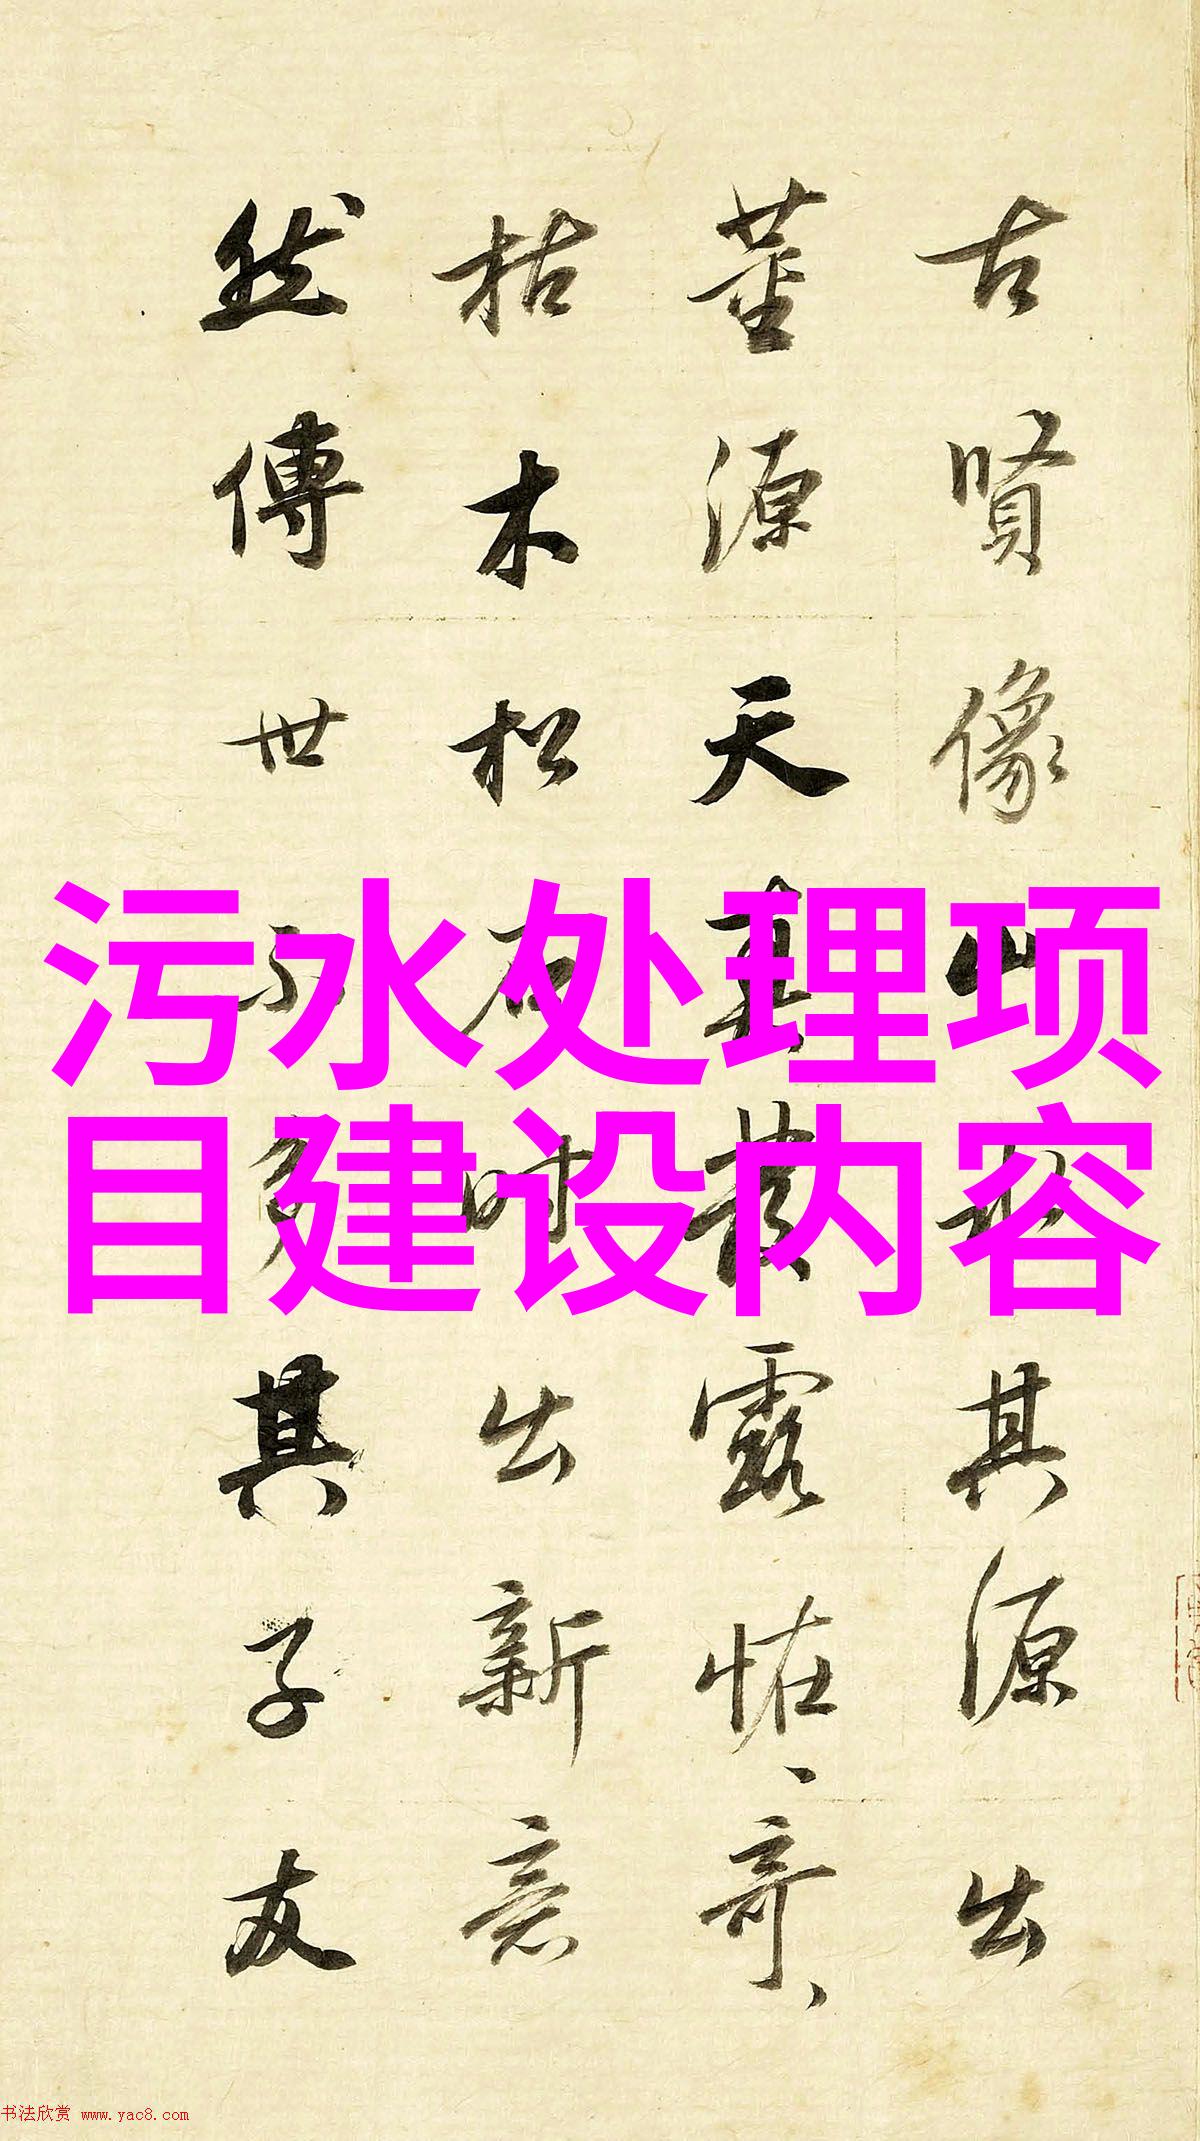 污水处理项
目建设内容
古贤像山水其源出
董源天真发露怪怪奇奇
枯木松石时出新意
然傳世不多其子友
书法欣赏 www.yac8.com